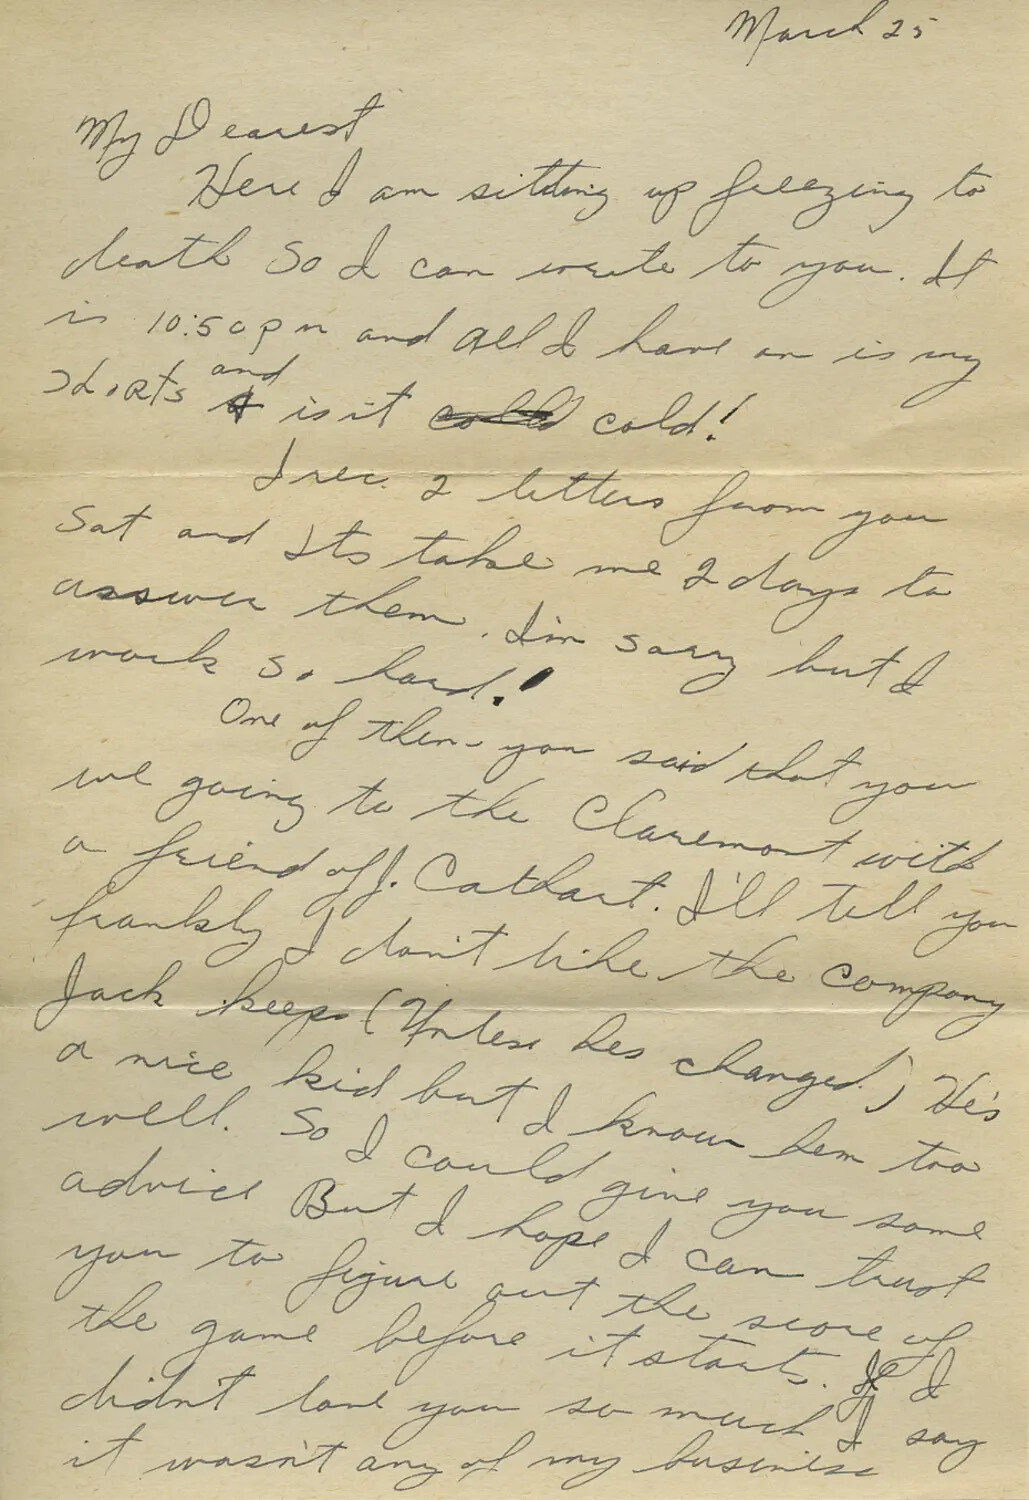 March 25
My Dearest
Here I am sitting up freezing to
death So I can write to you. It
is 10:50 pm and All I have on is my
shorts and is it cold!
I rec. 2 letters from you
Sat and Its take me 2 days to
answer them. I'm sorry but I
work so hard!
One of them you said that you
we going to the Claremont with
a friend of J. Cathart. I'll tell you
frankly I don't like the company
Jack keeps (Unless hes changed.) He's
a nice kid but I know hem too
well. So I could give you some
advice But I hope I can trust
you to figure out the score of
the game before it starts. If I
didn't love you so much I say
it wasn't any of my business